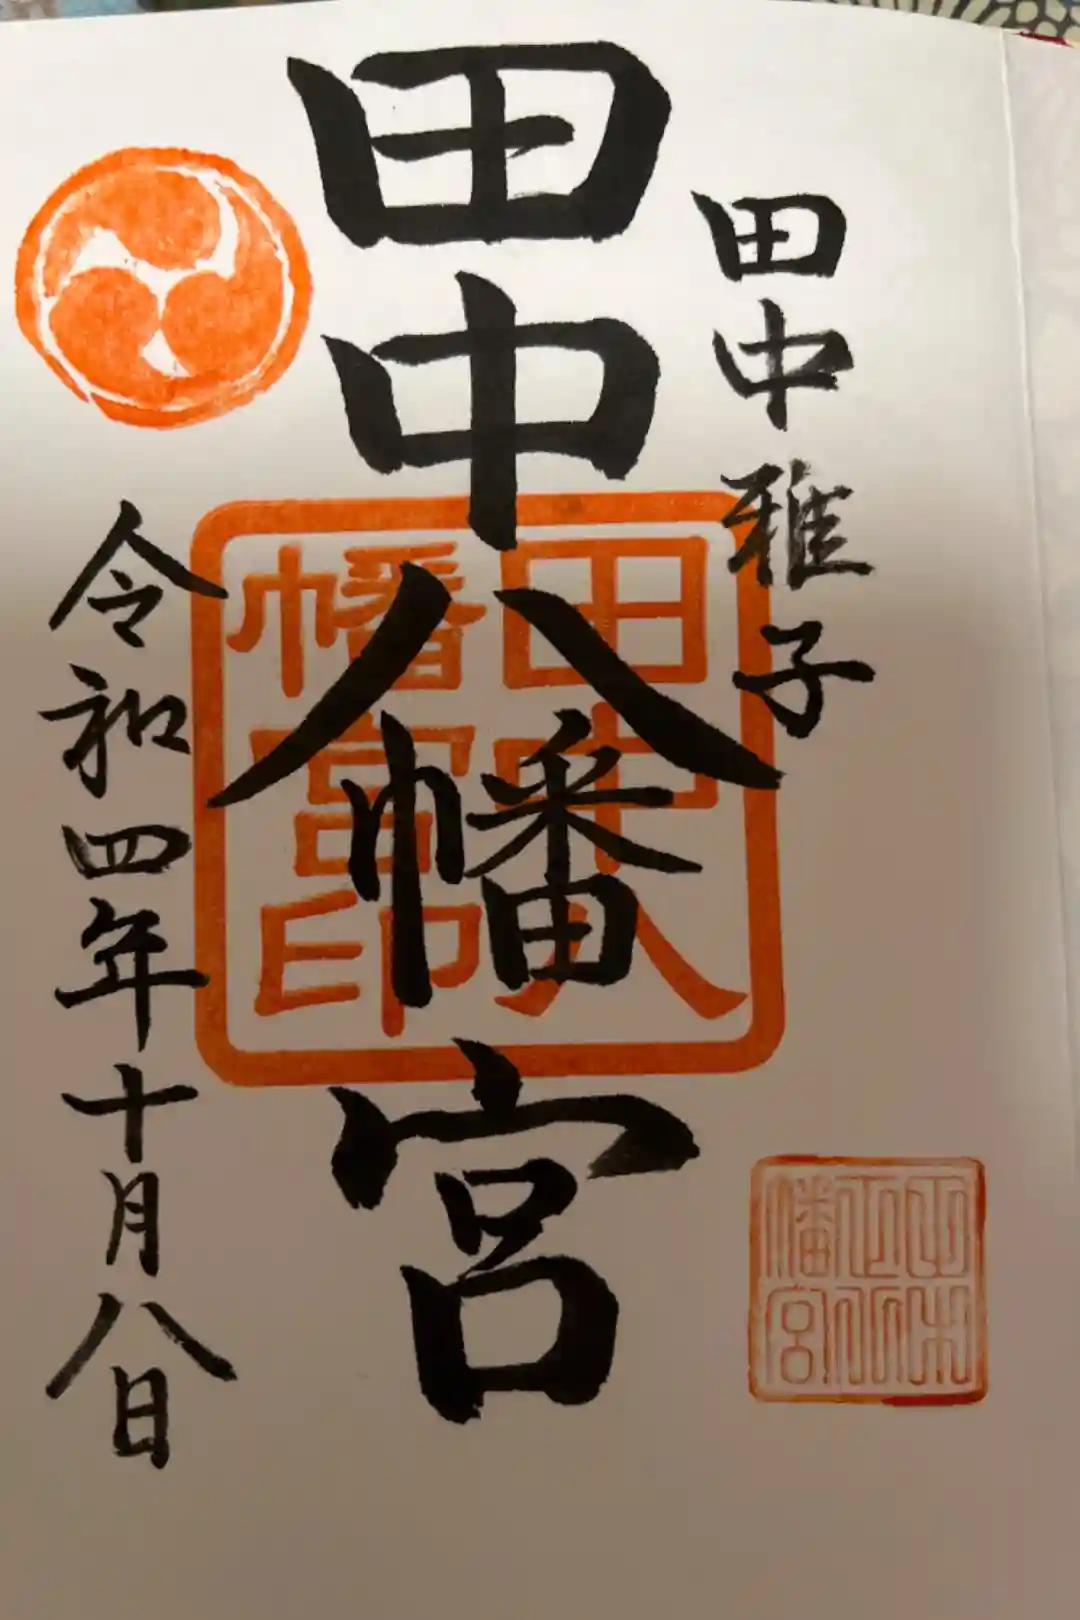 田中 雅子
田中八幡宮
田中八
幡宮印
令和四年十月八日
幡宮